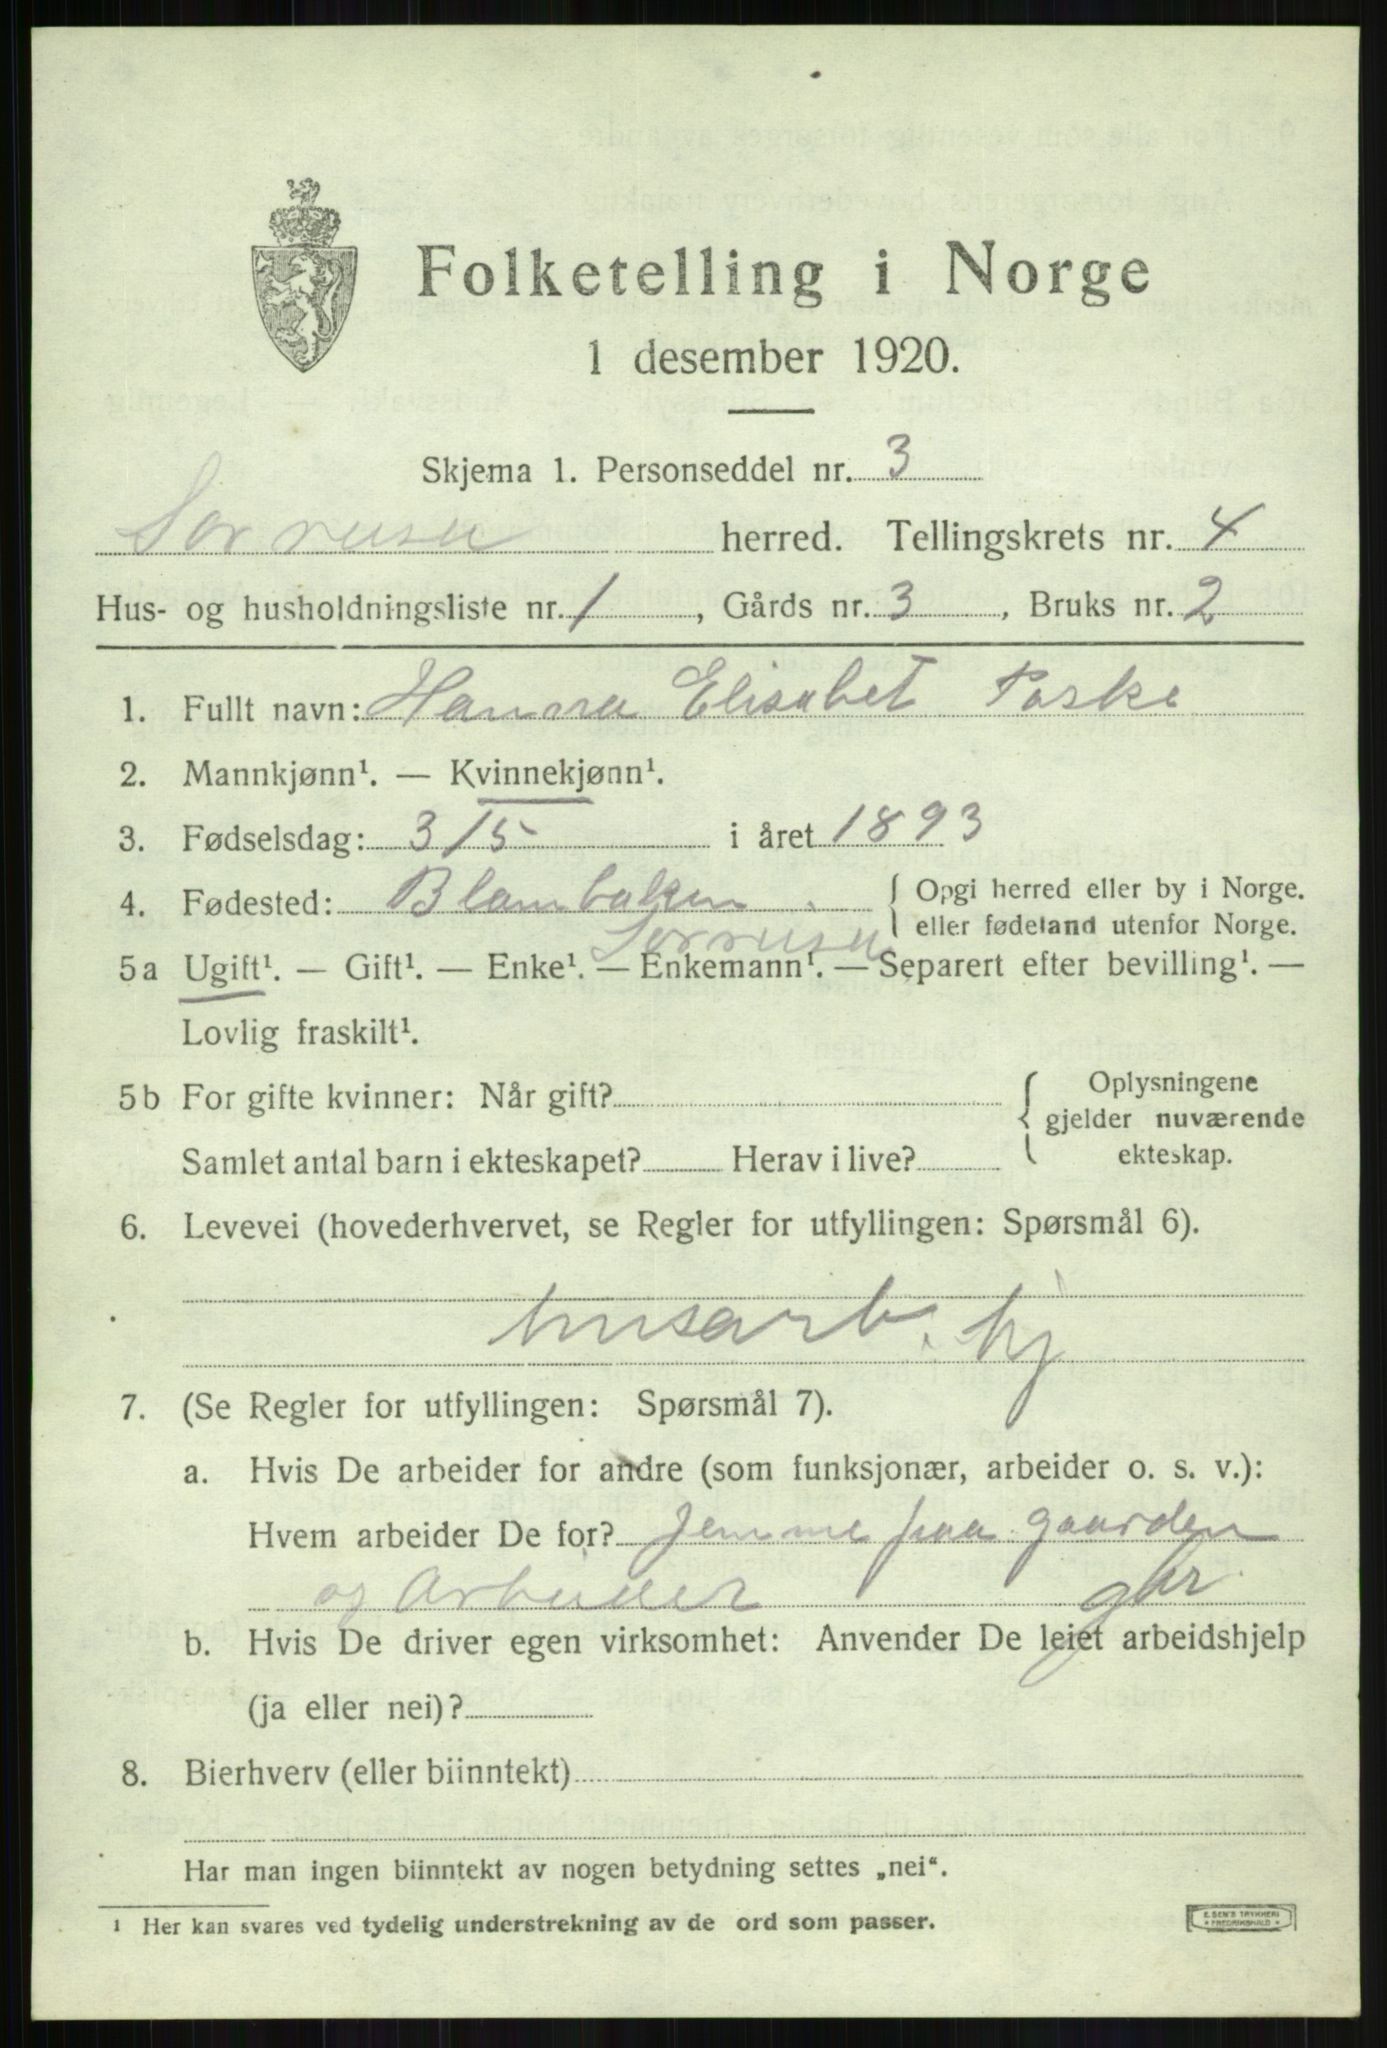 Folketelling i Norge
1 desember 1920.
Skjema 1. Personseddel nr. 3
Sørreisa herred. Tellingskrets nr. 4
Hus- og husholdningsliste nr. 1, Gårds nr. 3, Bruks nr. 2
1. Fullt navn: Hanna Elisabet Paske
2. Mannkjønn¹. — Kvinnekjønn¹.
3. Fødselsdag: 3/5 i året 1893
4. Fødested: { Opgi herred eller by i Norge.
eller fødeland utenfor Norge.
5a Ugift¹. — Gift¹. — Enke¹. — Enkemann¹. — Separert efter bevilling¹. —
Lovlig fraskilt¹.
5b For gifte kvinner: Når gift? { Oplysningene
gjelder nuværende
Samlet antal barn i ekteskapet? Herav i live? ekteskap.
6. Levevei (hovederhvervet, se Regler for utfyllingen: Spørsmål 6).
husarb. hj
7. (Se Regler for utfyllingen: Spørsmål 7).
a. Hvis De arbeider for andre (som funksjonær, arbeider o. s. v.):
Hvem arbeider De for? jemme paa gaarden
og Arbeider gbr.
b. Hvis De driver egen virksomhet: Anvender De leiet arbeidshjelp
(ja eller nei)?
8. Bierhverv (eller biinntekt)
Har man ingen biinntekt av nogen betydning settes „nei“.
¹ Her kan svares ved tydelig understrekning av de ord som passer.
E. SEN'S TRYKKERI
FREDRIKSHALD